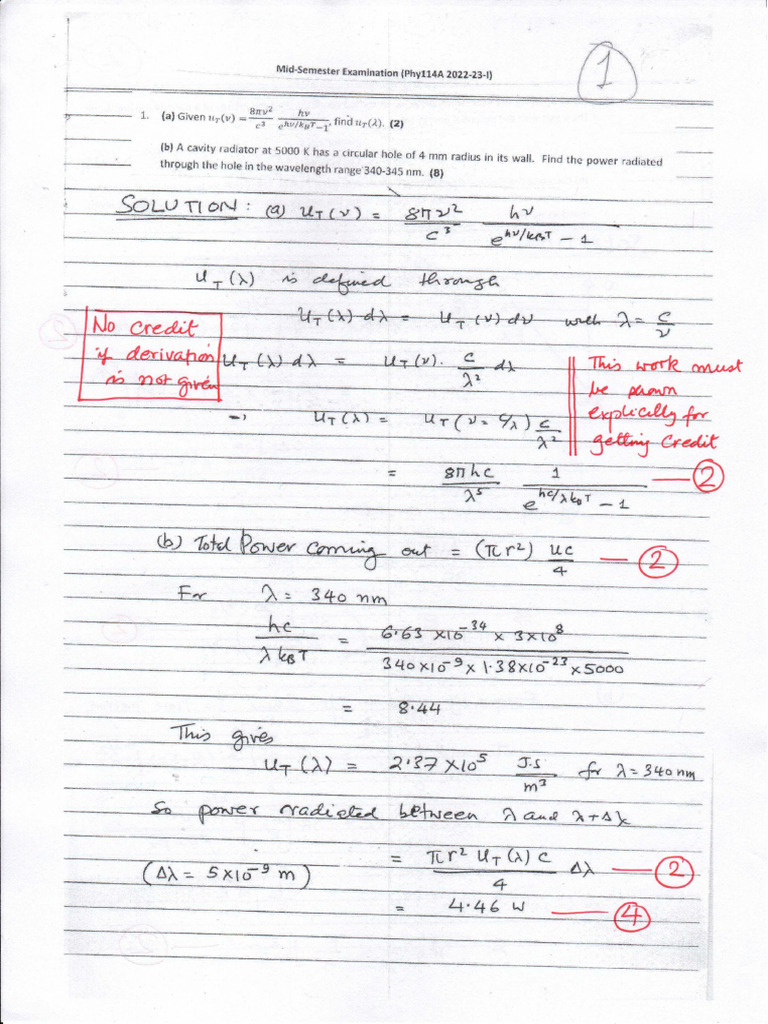 Mid-Semester Examination (Phy114A 2022-23-I)
1
1. (a) Given u_T(ν) = 8πν²/c³ hν/(e^{hν/k_BT}−1), find u_T(λ). (2)
(b) A cavity radiator at 5000 K has a circular hole of 4 mm radius in its wall. Find the power radiated
through the hole in the wavelength range 340-345 nm. (8)
SOLUTION: (a) u_T(ν) = 8πν²/c³ hν/(e^{hν/k_BT} − 1)
u_T(λ) is defined through
u_T(λ) dλ = u_T(ν) dν with λ = c/ν
No credit
if derivation
is not given
u_T(λ) dλ = u_T(ν). c/λ² dλ
This work must
be shown
explicitly for
getting credit
⇒ u_T(λ) = u_T(ν = c/λ) c/λ²
= 8πhc/λ⁵ 1/(e^{hc/λk_BT} − 1) — 2
(b) Total Power coming out = (πr²) uc/4 — 2
For λ = 340 nm
hc/λk_BT = 6.63 × 10⁻³⁴ × 3×10⁸/340×10⁻⁹ × 1.38×10⁻²³ × 5000
= 8.44
This gives
u_T(λ) = 2.37 × 10⁵ J.s/m³ for λ = 340 nm
So power radiated between λ and λ+Δλ
(Δλ = 5×10⁻⁹ m) = πr² u_T(λ) c/4 Δλ — 2
= 4.46 W — 4